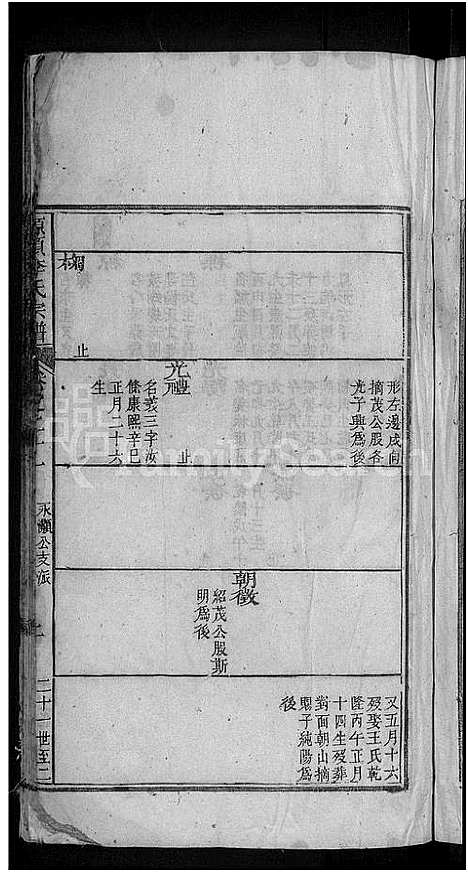 李氏宗譜
永順公支派
二十一世至二
又五月十六
歿娶王氏乾
隆丙午正月
十四生歿葬
對面朝山摘
子純陽爲
後
朝徵
紹茂公股斯
明爲後
形左邊戌向
摘茂公股各
光子興爲後
光豊
止
名義三字汝
脩康熙辛巳
正月二十六
生
止
FamilySearch